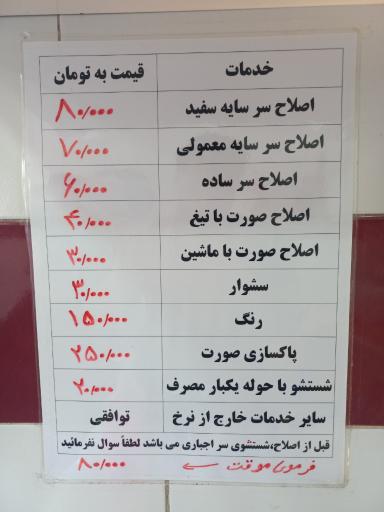 خدمات قیمت به تومان
اصلاح سر سایه سفید ۸۰/۰۰۰
اصلاح سر سایه معمولی ۷۰/۰۰۰
اصلاح سر ساده ۶۰/۰۰۰
اصلاح صورت با تیغ ۴۰/۰۰۰
اصلاح صورت با ماشین ۳۰/۰۰۰
سشوار ۳۰/۰۰۰
رنگ ۱۵۰/۰۰۰
پاکسازی صورت ۲۵۰/۰۰۰
شستشو با حوله یکبار مصرف ۲۰/۰۰۰
سایر خدمات خارج از نرخ توافقی
قبل از اصلاح،شستشوی سر اجباری می باشد لطفاً سوال نفرمائید
فرمول موقت ۸۰/۰۰۰